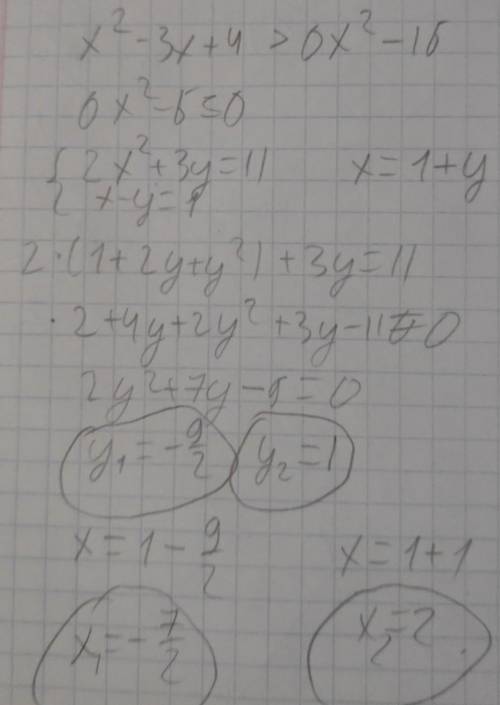 x² - 3x + 4 > 0x² - 16
0x² - 5 ≤ 0
{ 2x² + 3y = 11 x = 1 + y
x - y = 1
2 · (1 + 2y + y²) + 3y = 11
· 2 + 4y + 2y² + 3y - 11 = 0
2y² + 7y - 9 = 0
y₁ = -9/2 y₂ = 1
x = 1 - 9/2 x = 1 + 1
x₁ = -7/2 x₂ = 2